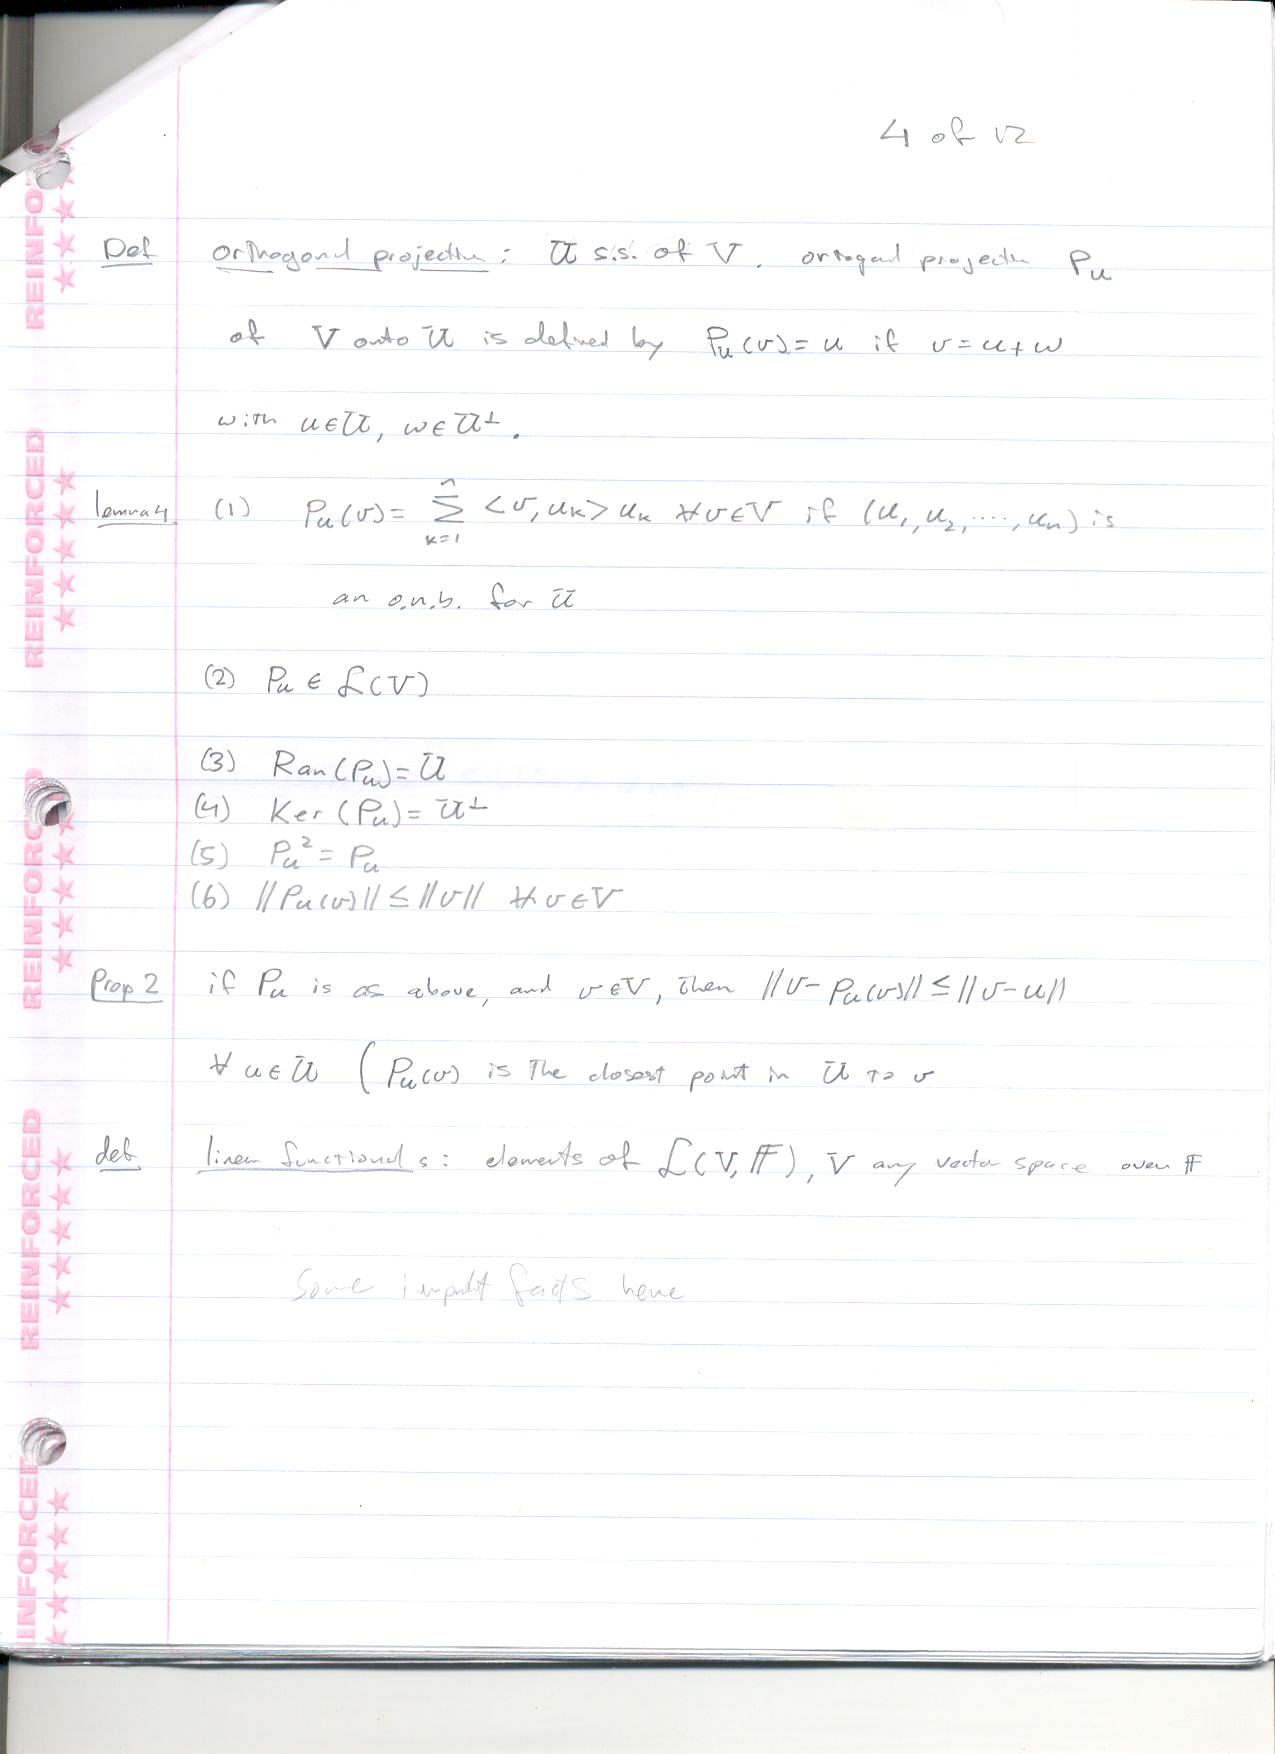 4 of 12
Def orthogonal projection: U s.s. of V. ortogonal projection P_U
of V onto U is defined by P_U(v) = u if v = u + w
with u ∈ U, w ∈ U⊥.
lemma 4 (1) P_U(v) = Σ_{k=1}^{n} <v, u_k> u_k ∀ v ∈ V if (u_1, u_2, ...., u_n) is
an o.n.b. for U
(2) P_U ∈ L(V)
(3) Ran(P_U) = U
(4) Ker(P_U) = U⊥
(5) P_U² = P_U
(6) ||P_U(v)|| ≤ ||v|| ∀ v ∈ V
Prop 2 if P_U is as above, and v ∈ V, then ||v - P_U(v)|| ≤ ||v - u||
∀ u ∈ U (P_U(v) is the closest point in U to v
def linear functionals: elements of L(V, F), V any vector space over F
Some impott facts here
REINFORCED
REINFORCED
REINFORCED
REINFORCED
INFORCED